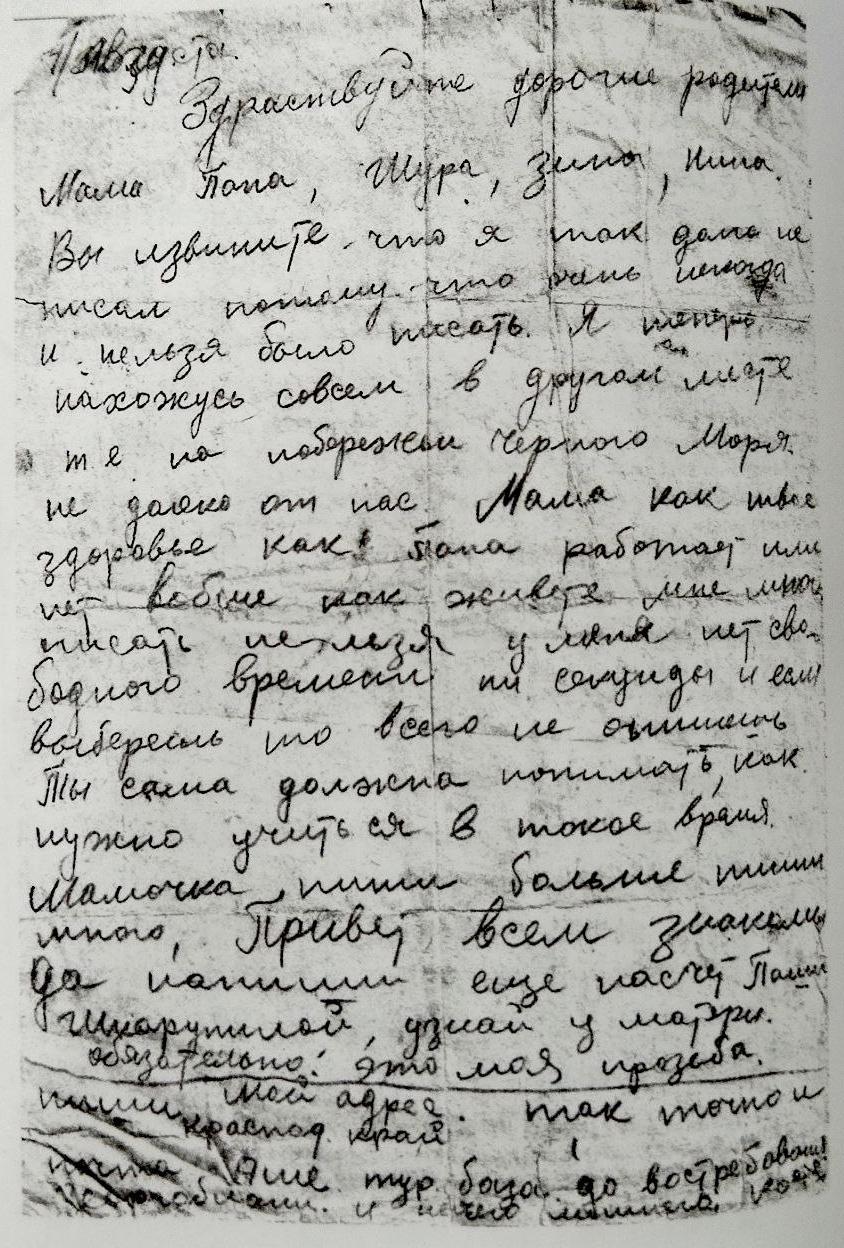 Августа
Здраствуйте дорогие родители
Мама Папа, Шура, Зина, Нина.
Вы извините что я так долго не
писал потому что очень некогда
и нельзя было писать. Я теперь
нахожусь совсем в другом месте
на побережьи Черного Моря.
не далеко от нас. Мама как твое
здоровье как Папа работает или
нет вобще как живете мне много
писать нельзя у меня нет сво-
бодного времени ни секунды и если
то всего не опишешь
Ты сама должна понимать, как
нужно учиться в такое время.
Мамочка пиши больше пиши
много, Привет всем знакомым
Да напиши еще насчет
узнай у матери.
обязательно! это моя прозьба.
пиши мой адрес. так точно и
краснод. край
почта Аше тур база до востребования
и нечего лишнего.